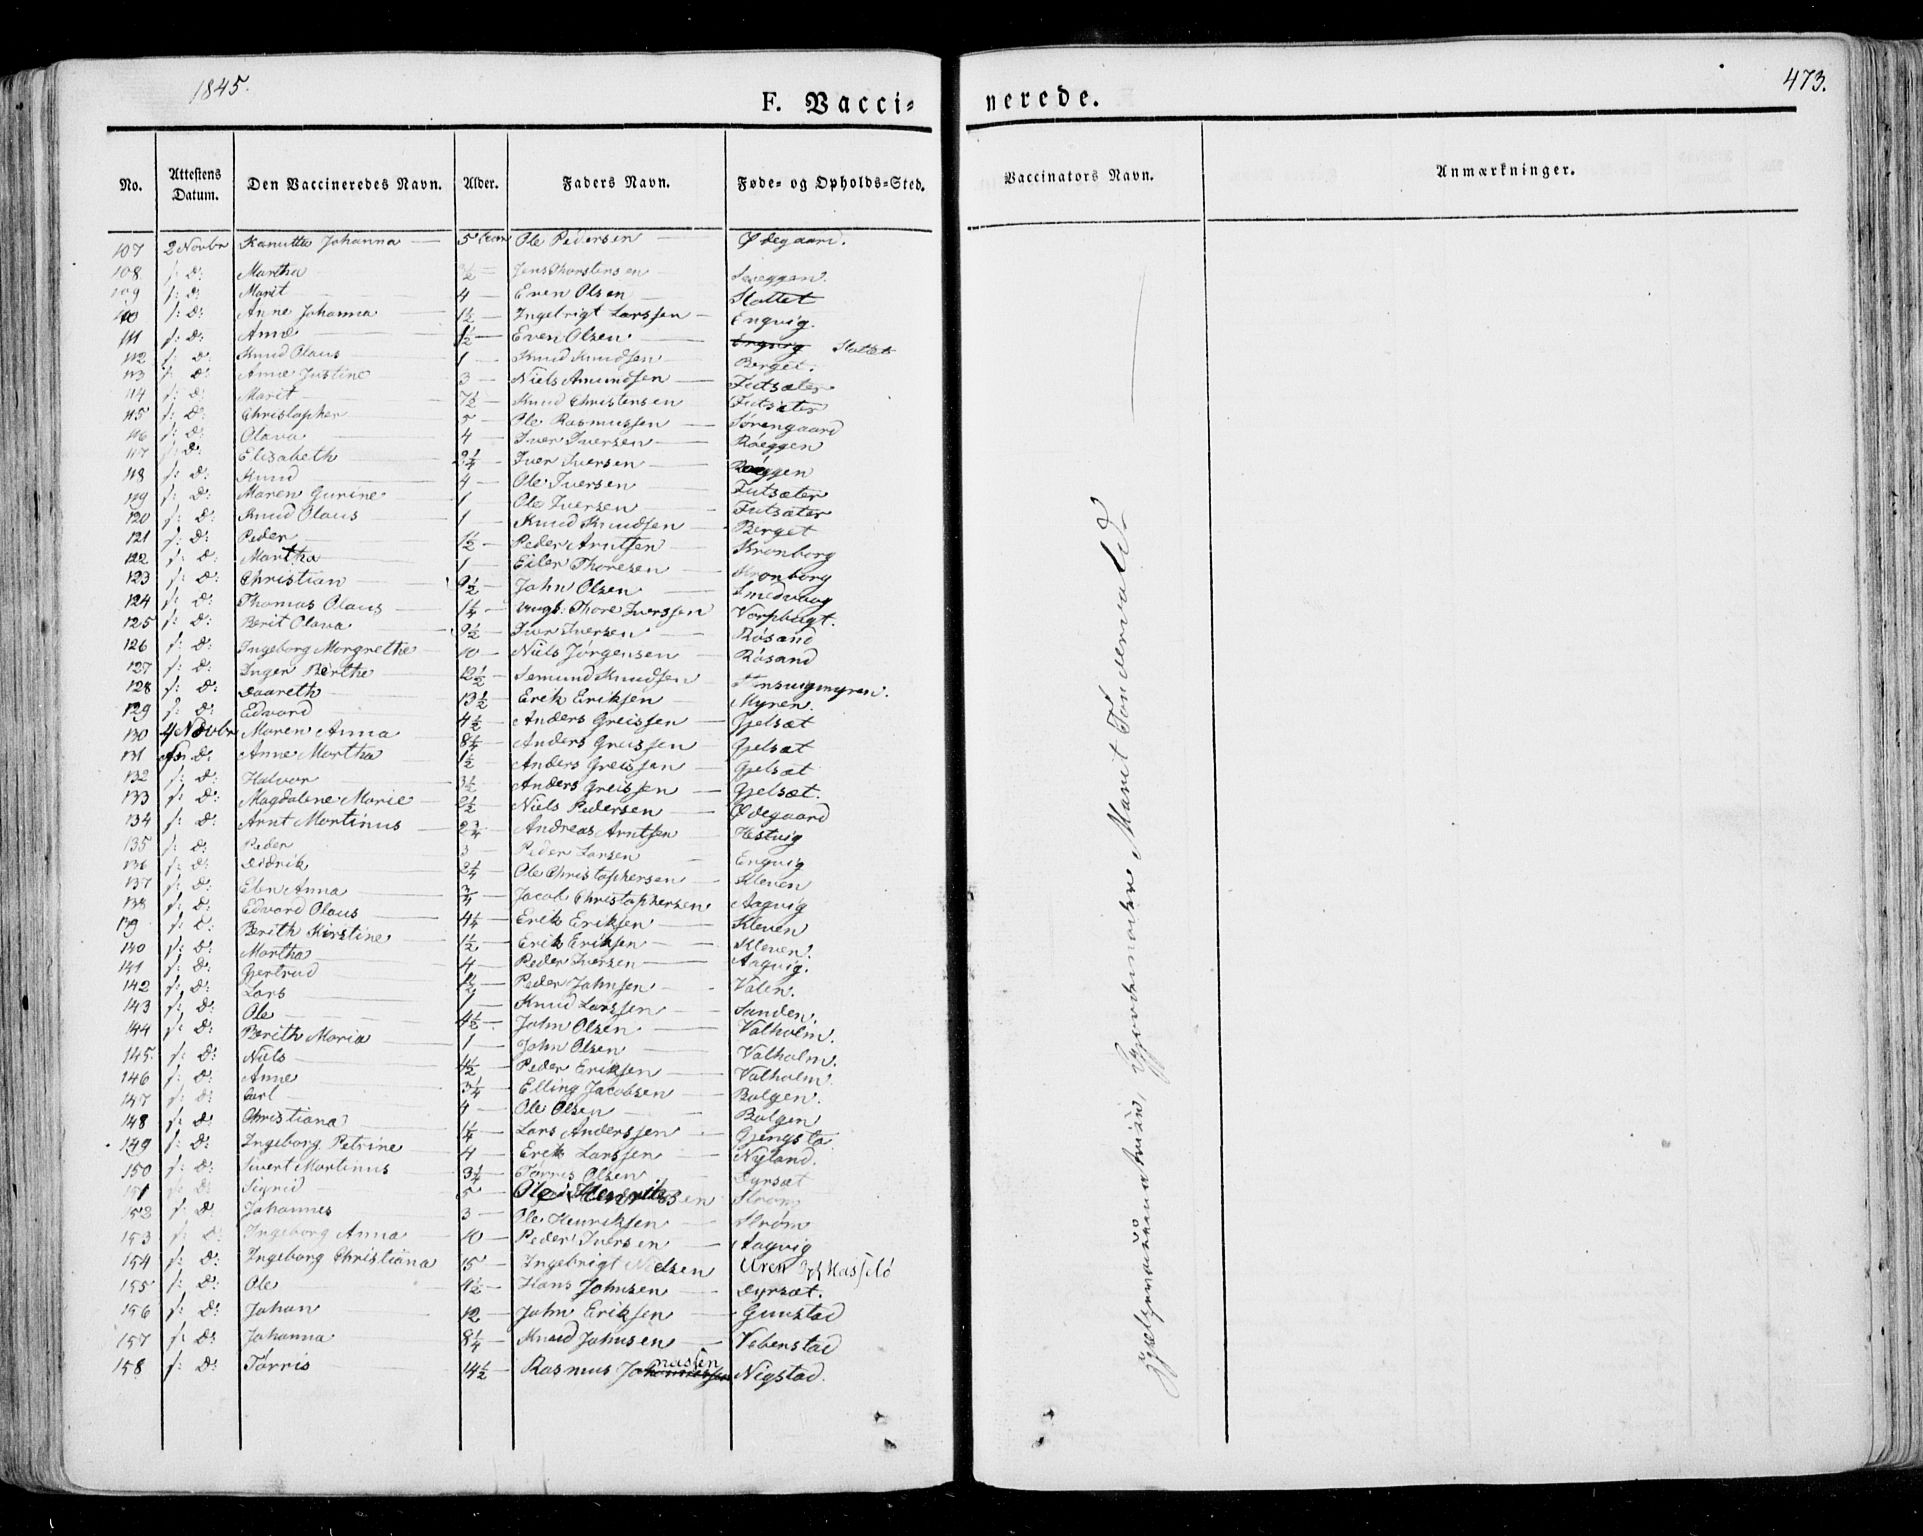 1845.
473.
F. Vaccinerede.
No. Attestens Datum. Den Vaccineredes Navn. Alder. Faders Navn. Føde- og Opholds-Sted. Vaccinators Navn. Anmærkninger.
107 2 Novbr Kanutta Johanna 5 Ole Pedersen Ødegaard.
108 s: d: Martha 3½ Jens Thorstensen
109 s: d: Marit 4 Even Olsen Slattet
110 s: d: Anne Johanna 1½ Ingebrigt Larssen Engvig.
111 s: d: Anne 1½ Even Olsen Engvig Slattet
112 s: d: Knud Olaus 1 Knud Knudsen Berget.
113 s: d: Anne Justine 3 Niels Amundsen Futsæter
114 s: d: Marit 7½ Knud Christensen Futsæter
115 s: d: Christopher 5 Ole Rasmussen Sørengaard
116 s: d: Olava 4 Iver Iversen Røeggen
117 s: d: Elisabeth 2¼ Iver Iversen Røeggen
118 s: d: Knud 4 Ole Iversen Futsæter
119 s: d: Maren Gurine 1 Ole Iversen Futsæter
120 s: d: Knud Olaus 1 Knud Knudsen Berget
121 s: d: Peder 1½ Peder Arntsen Kronborg
122 s: d: Martha 1 Eiler Thoresen Kronborg
123 s: d: Christian 9½ John Olsen Smedvaag
124 s: d: Thomas Olaus 1¼ Thore Iverssen
125 s: d: Berit Olava 9½ Iver Iversen Røsand
126 s: d: Ingeborg Margrethe 10 Niels Jørgensen Røsand
127 s: d: Inger Berthe 12½ Semund Knudsen
128 s: d: Daareth 13½ Erik Eriksen Myren.
129 s: d: Edvard 4½ Anders Greissen Gjelsæt
130 4 Novbr Maren Anna 8¼ Anders Greissen Gjelsæt
131 s: d: Anne Martha 1½ Anders Greissen Gjelsæt
132 s: d: Halvor 3½ Anders Greissen Gjelsæt.
133 s: d: Magdalene Marie 2½ Niels Pedersen Ødegaard
134 s: d: Arnt Martinus 2¾ Andreas Arntsen Hestvig
135 s: d: Peder 3 Peder Larsen Engvig
136 s: d: Didrik 2¼ Ole Christophersen Kleven
137 s: d: Elen Anna ¾ Jacob Christophersen Aagvig
138 s: d: Edvard Olaus 4¼ Erik Eriksen Kleven
139 s: d: Berith Kirstine 1½ Erik Eriksen Kleven.
140 s: d: Martha 4 Peder Iversen Aagvig.
141 s: d: Gjertrud 1½ Peder Johnsen Valen.
142 s: d: Lars 1 Knud Larssen Sanden.
143 s: d: Ole 4½ John Olsen Valholm.
144 s: d: Berith Maria 1 John Olsen Valholm.
145. s: d: Niels 4½ Peder Eriksen Valholm.
146 s: d: Anne 3¼ Elling Jacobsen Bolgen.
147 s: d: Carl 4 Ole Olsen Bolgen
148 s: d: Christiana 1¼ Lars Anderssen Gjengstø
149 s: d: Ingeborg Petrine 4 Erik Larssen Nyland.
150 s: d: Sivert Martinus 3¼ Torris Olsen Dyrsæt
151 s: d: Sigrid 5 Ole Henriksen Strøm
152 s: d: Johannes 3 Ole Henriksen Strøm
153 s: d: Ingeborg Anna 10 Peder Iversen Aagvig
154 s: d: Ingeborg Christiana 15 Ingebrigt Nielsen Uren
155 s: d: Ole 9½ Hans Johnsen Dyrsæt.
156 s: d: Johan 12 John Eriksen Gunstad
157 s: d: Johanna 8¼ Knud Johnsen Vebenstad
158 s: d: Torris 14½ Rasmus Nigstad.
Hjelpevaccinatrice, Gjordemoder Marit Tøndervald